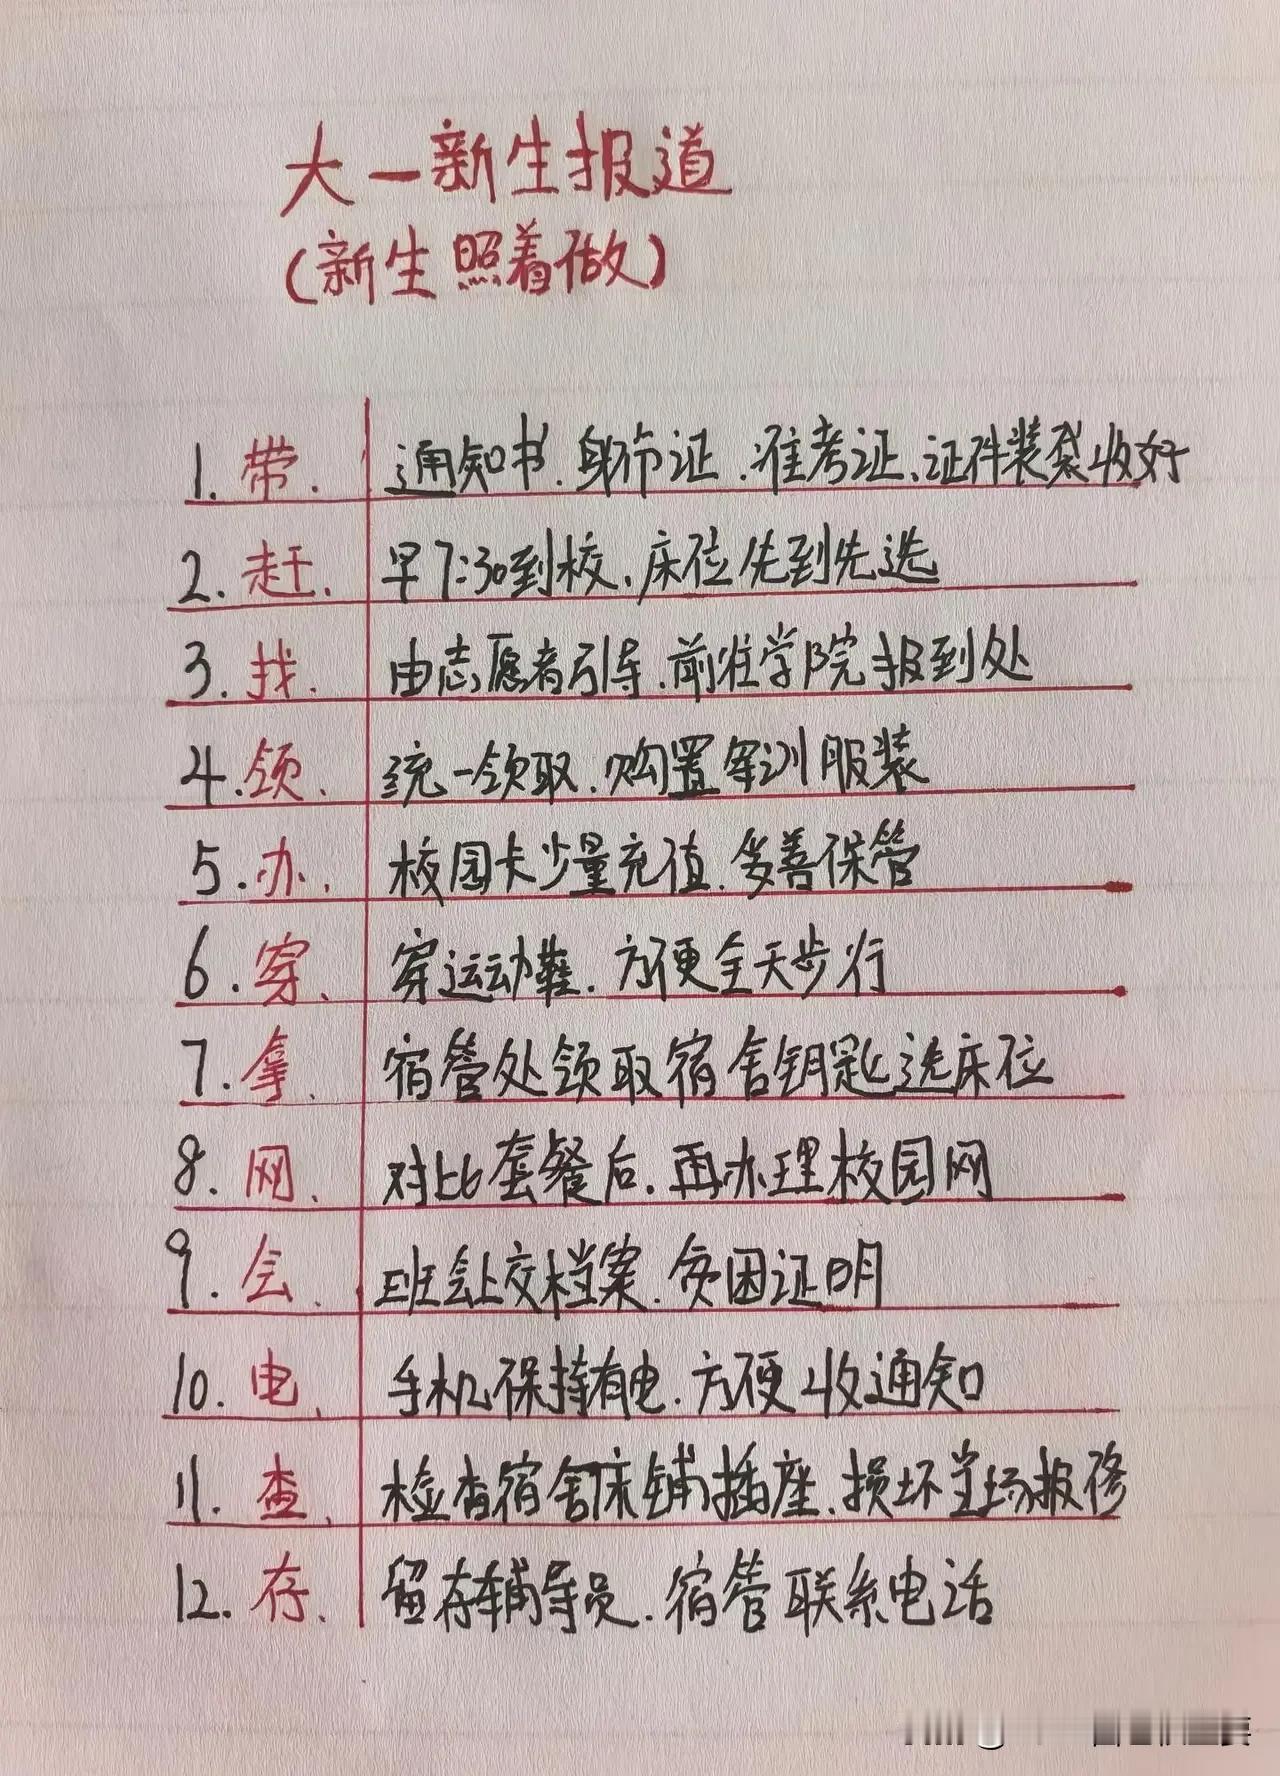 大一新生报道
(新生照着做)
1. 带. 通知书.身份证.准考证、证件装袋收好
2. 赶. 早7:30到校、床位先到先选
3. 找. 由志愿者引导.前往学院报到处
4. 领. 统一领取.购置军训服装
5. 办. 校园卡少量充值.妥善保管
6. 穿. 穿运动鞋.方便全天步行
7. 拿. 宿管处领取宿舍钥匙选床位
8. 网. 对比套餐后.再办理校园网
9. 会. 班会上交档案.贫困证明
10. 电. 手机保持有电.方便收通知
11. 查. 检查宿舍床铺插座.损坏当场报修
12. 存. 留存辅导员.宿管联系电话